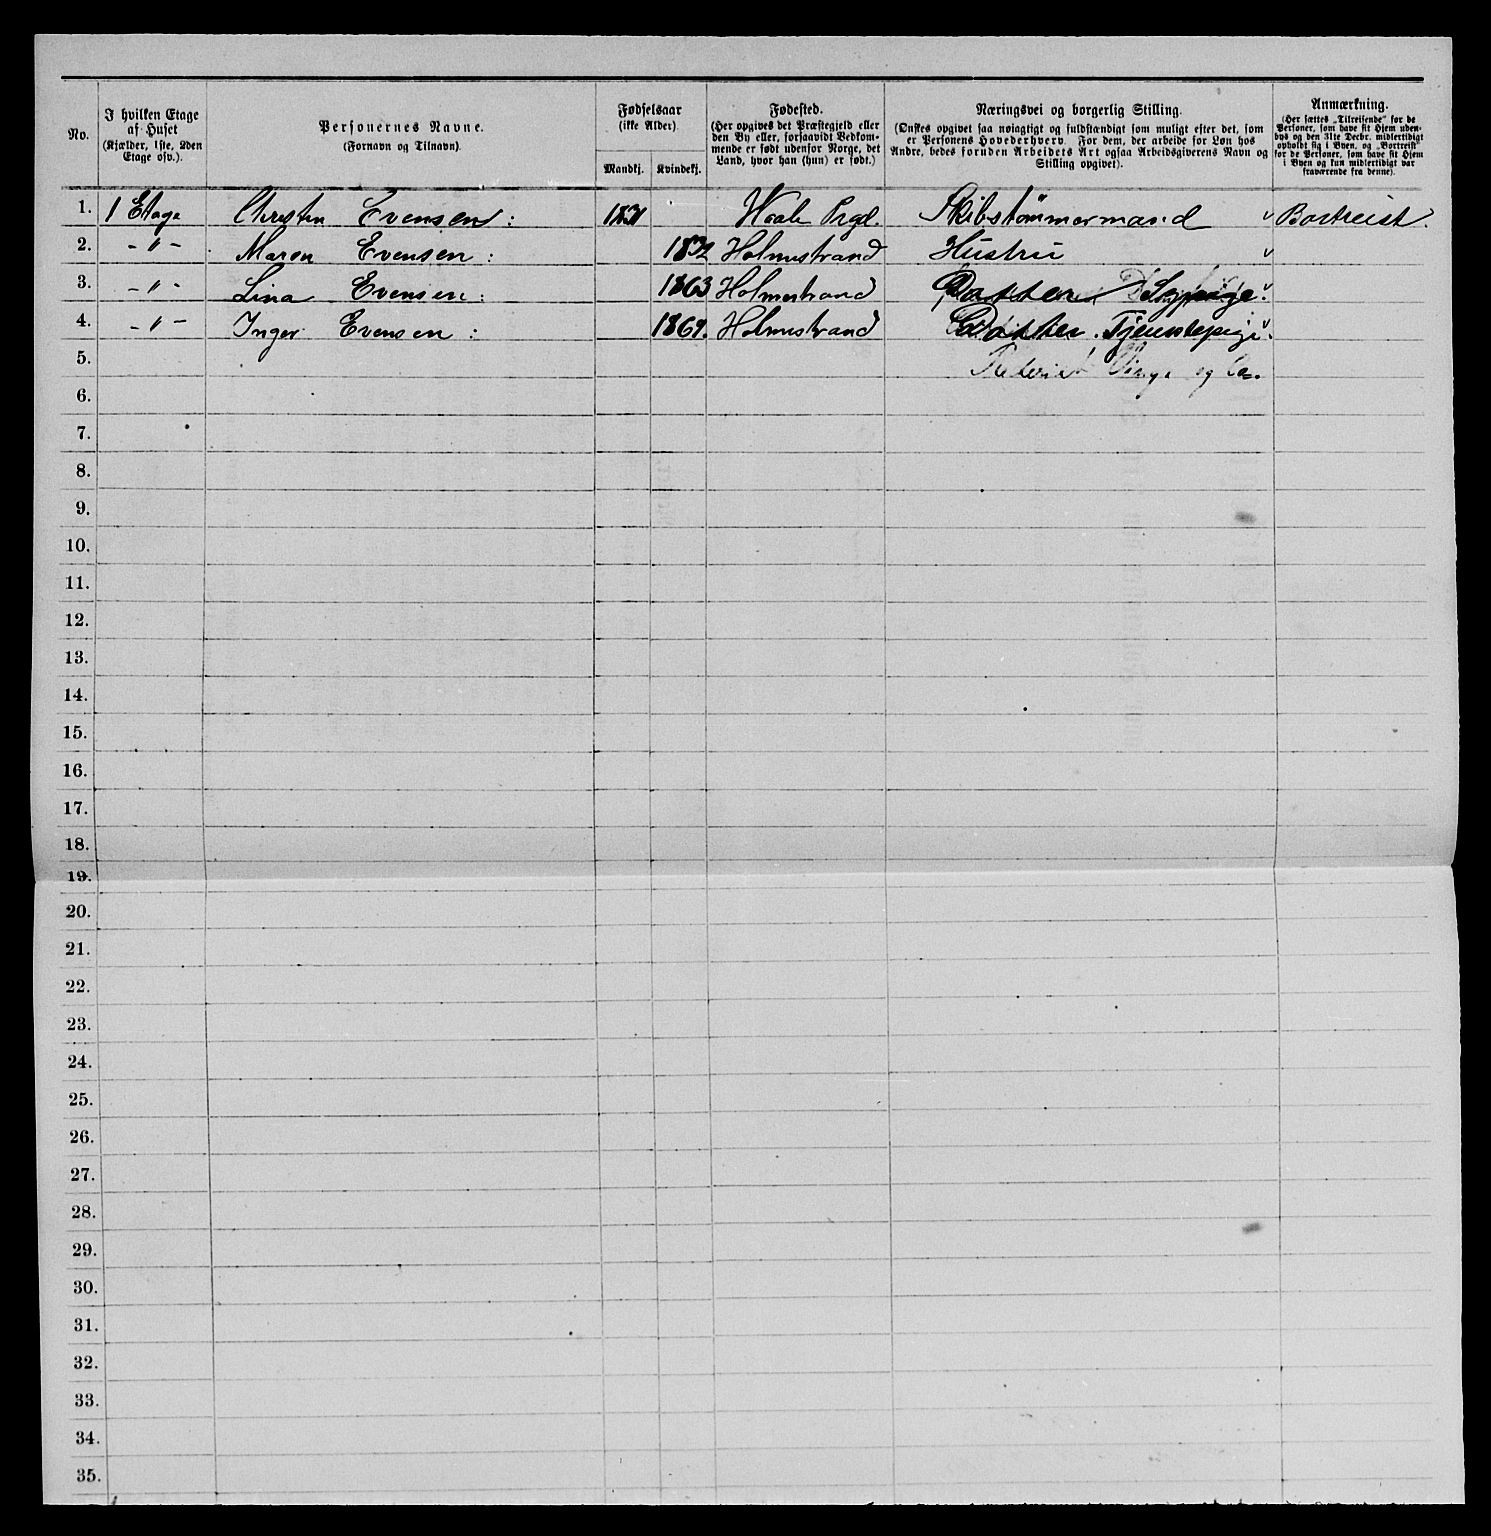 No.
I hvilken Etage
af Huset
(Kjælder, 1ste, 2den
Etage osv.).
Personernes Navne.
(Fornavn og Tilnavn).
Fødselsaar
(ikke Alder)
Mandkj.
Kvindekj.
Fødested.
(Her opgives det Præstegjeld eller
den By eller, forsaavidt Bedkom-
mende er født udenfor Norge, det
Land, hvor han (hun) er født.)
Næringsvei og borgerlig Stilling.
(Ønskes opgivet saa nøiagtigt og fuldstændigt som muligt efter det, som
er Personens Hovederhverv. For dem, der arbeide for Løn hos
Andre, bedes foruden Arbeidets Art ogsaa Arbeidsgiverens Navn og
Stilling opgivet).
Anmærkning.
(Her sættes „Tilreisende“ for de
Personer, som have sit Hjem uden-
bys og den 31te Decbr. midlertidigt
opholdt sig i Byen, og „Bortreist“
for de Personer, som have sit Hjem
i Byen og kun midlertidigt var
fraværende fra denne).
1. 1 Etage Christen Evensen : 1831 Waale Prgd. Skibstømmermand Bortreist.
2. - " - Maren Evensen : 1832 Holmestrand Hustru
3. - " - Lina Evensen : 1863 Holmestrand Datter Sypige.
4. - " - Inger Evensen : Holmestrand Datter. Tjenestepige.
5. og Co.
6.
7.
8.
9.
10.
11.
12.
13.
14.
15.
16.
17.
18.
19.
20.
21.
22.
23.
24.
25.
26.
27.
28.
29.
30.
31.
32.
33.
34.
35.